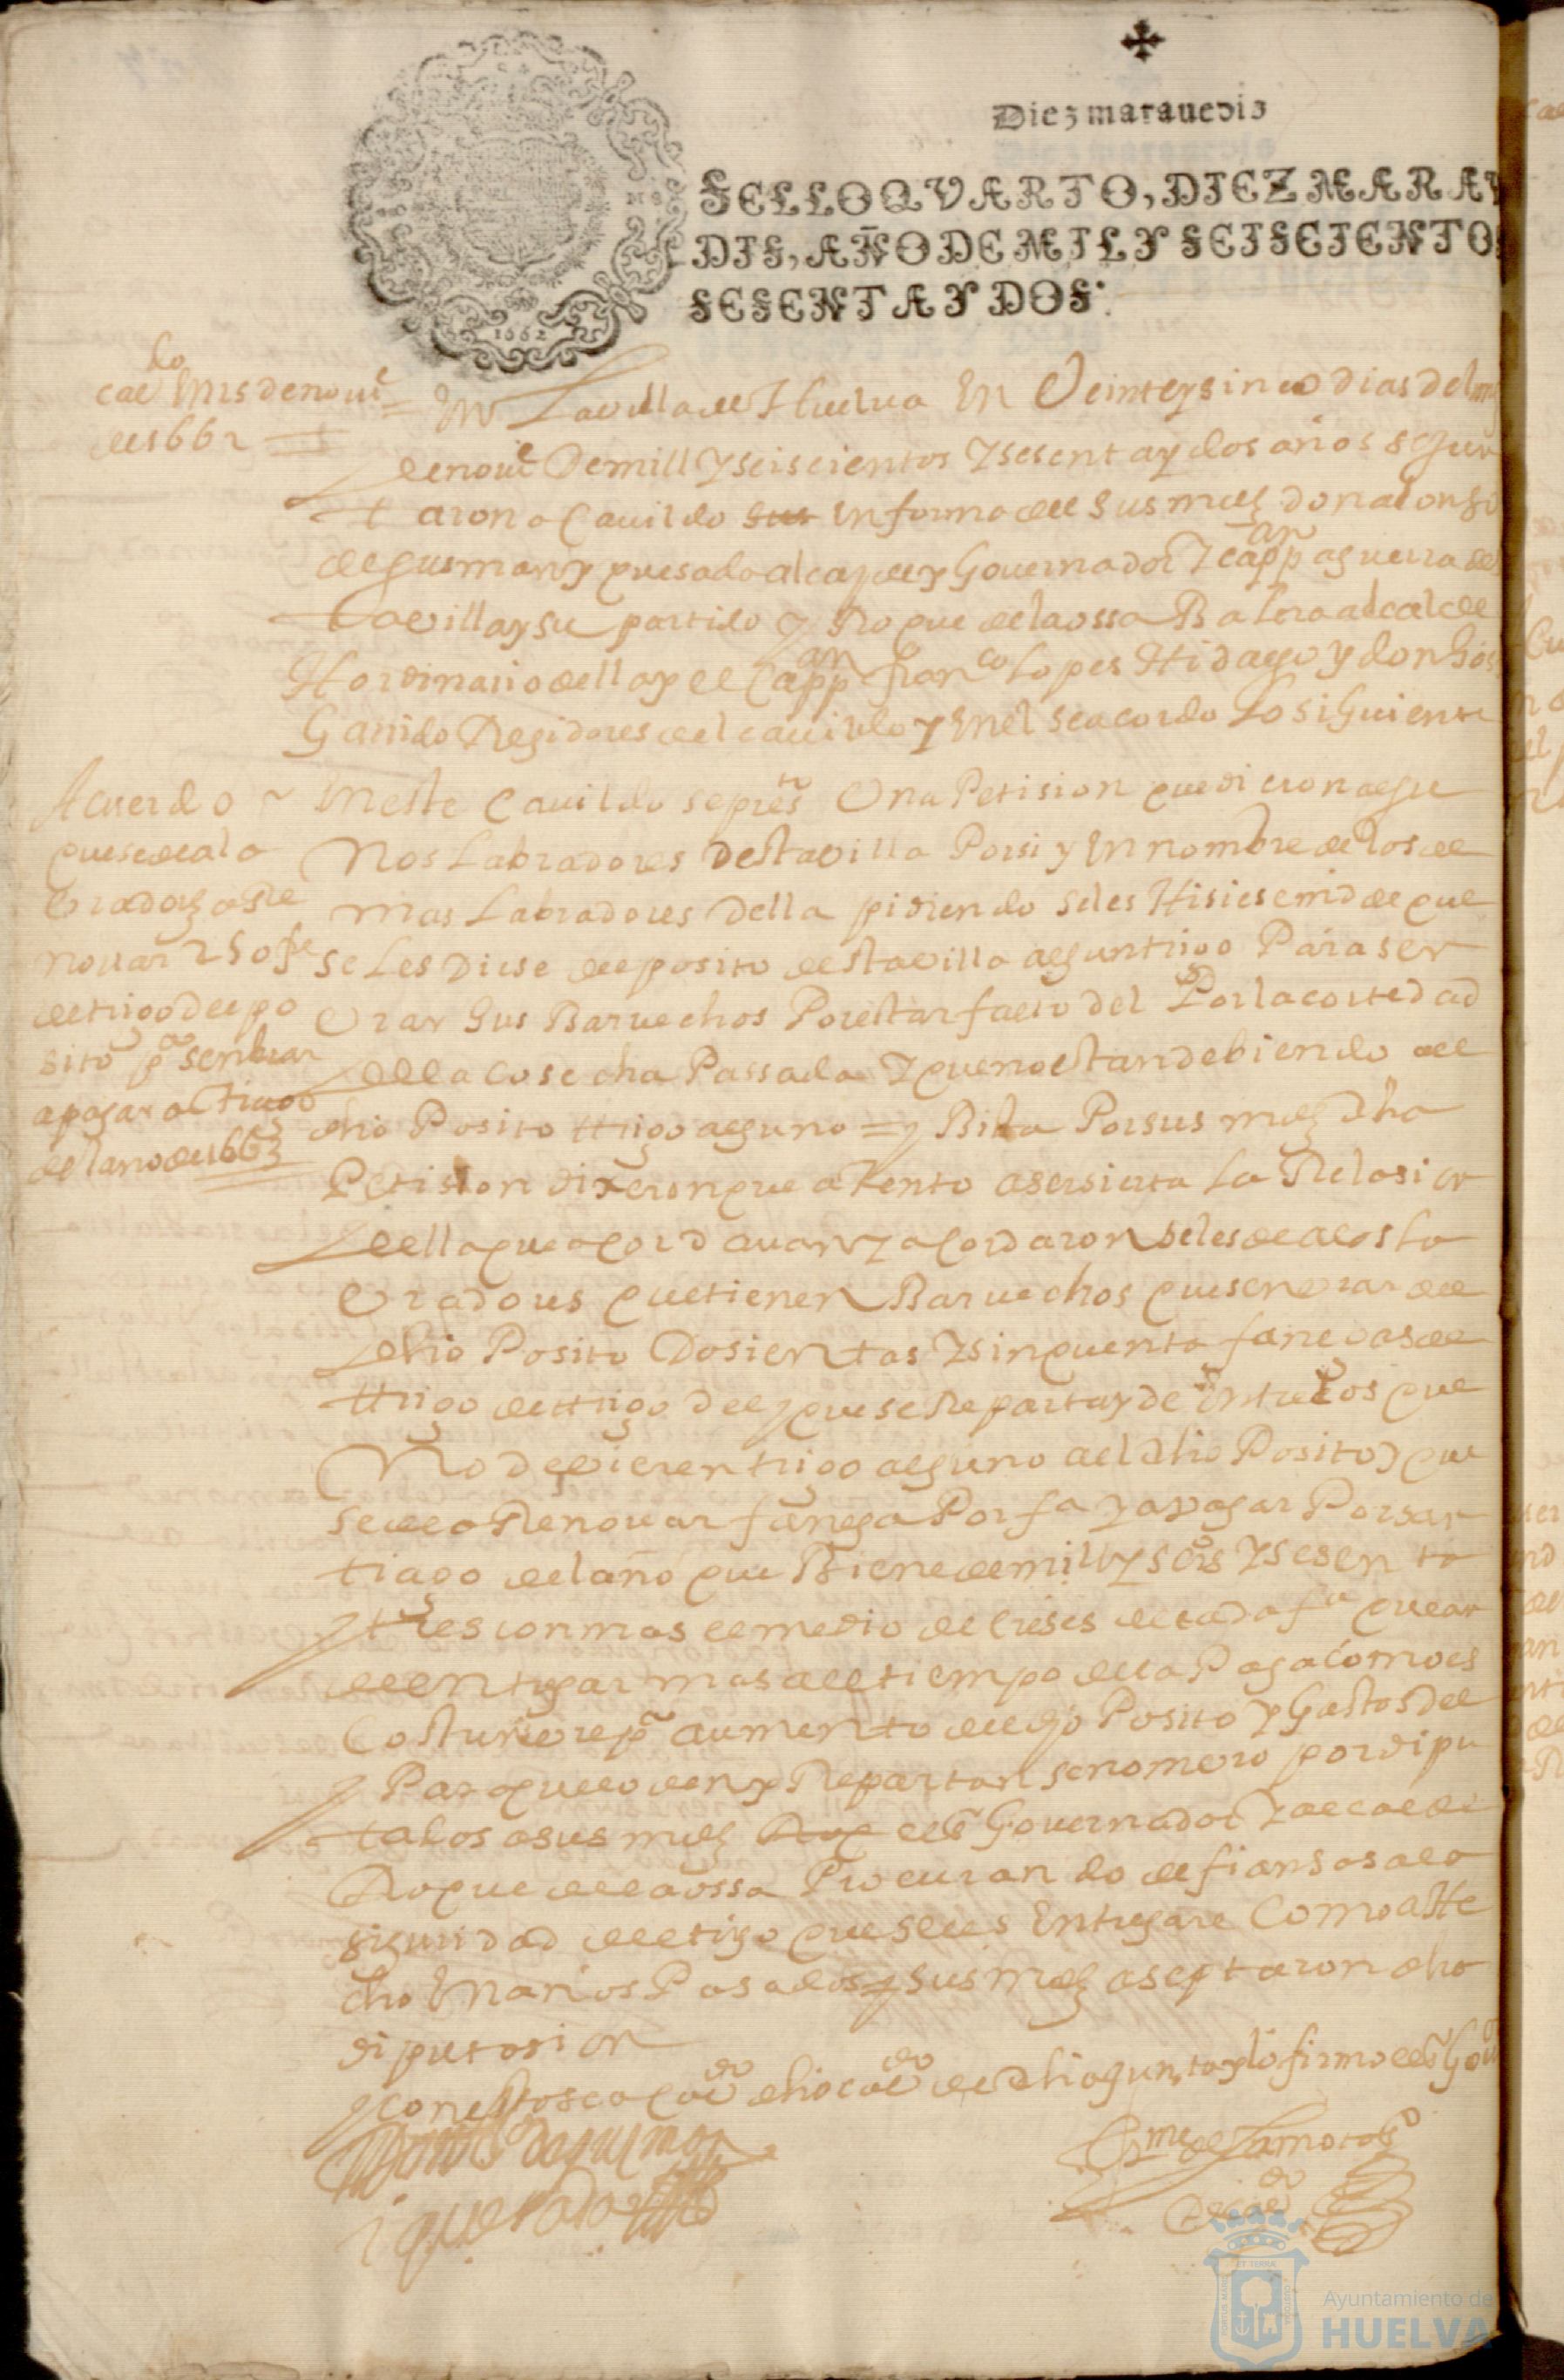 Diez marauedis
SELLO QVARTO, DIEZ MARAV
DIS, AÑO DE MIL Y SEISCIENTOS
SESENTA Y DOS.
1662
cau^do En 25 de nou^e
de 1662
En La villa de Huelua En Veinte y sinco dias del m
de nou^e De mill y seiscientos y sesenta y dos años se Jun
taron a Cauildo en forma de Sus m^des don alonso
de gusman y quesada alcayde y Gouernador y capp^an a guerra de
la villa y su partido y Roque de la ossa alcalde
Hordinario della y el Capp^an fran^co Lopes Hidalgo y don
Garrido Regidores del cauildo y En el se acordo Lo siguiente
Acuerdo
que se de a la
bradores a Re
nouar 250 f^s
de trigo del po
sito p^a senbrar
a pagar a Santiago
del año de 1663
En este Cauildo se pres^to Vna Petision que dieron algu
nos Labradores Desta villa Por si y En nombre de los de
mas Labradores Della pidiendo se les Hisiese m^d de que
se Les Diese del posito desta villa algun trigo Para sen
brar Sus Baruechos Por estar falto del Por la cortedad
de la cosecha Passada y que no estan debiendo al
dho Posito trigo alguno = y Bista Por sus m^des dha
Petision dixeron que atento a ser sierta La Relasion
della que acordauan y acordaron se les de a los La
bradores que tienen Baruechos que senbrar del
dho Posito Dosientas y sinquenta fanegas de
trigo de trigo del y que se Reparta y de Entre Los que
No devieren trigo alguno al dho Posito y que
se de a Renouar fanega Por f^a y a pagar Por san
tiago del año que Biene de mill y seis^os y sesenta
y tres con mas el medio de creses de cada f^a que an
de entregar mas al tiempo de la Paga como es
Costumbre p^a aumento del dho Posito y Gastos Del
y Para que lo den y Repartan se nombro por dipu
tados a sus m^des el s^r Gouernador y alcalde
Roque de la ossa Procurando de fiansas a la
siguridad del trigo que se les Entregare Como a He
cho En años Pasados y sus m^des aseptaron dha
diputasion
y con esto se acabo dho cau^do de dha Junta y lo firmo el s^r Gou^or
Don A^o de gusman
i quesada